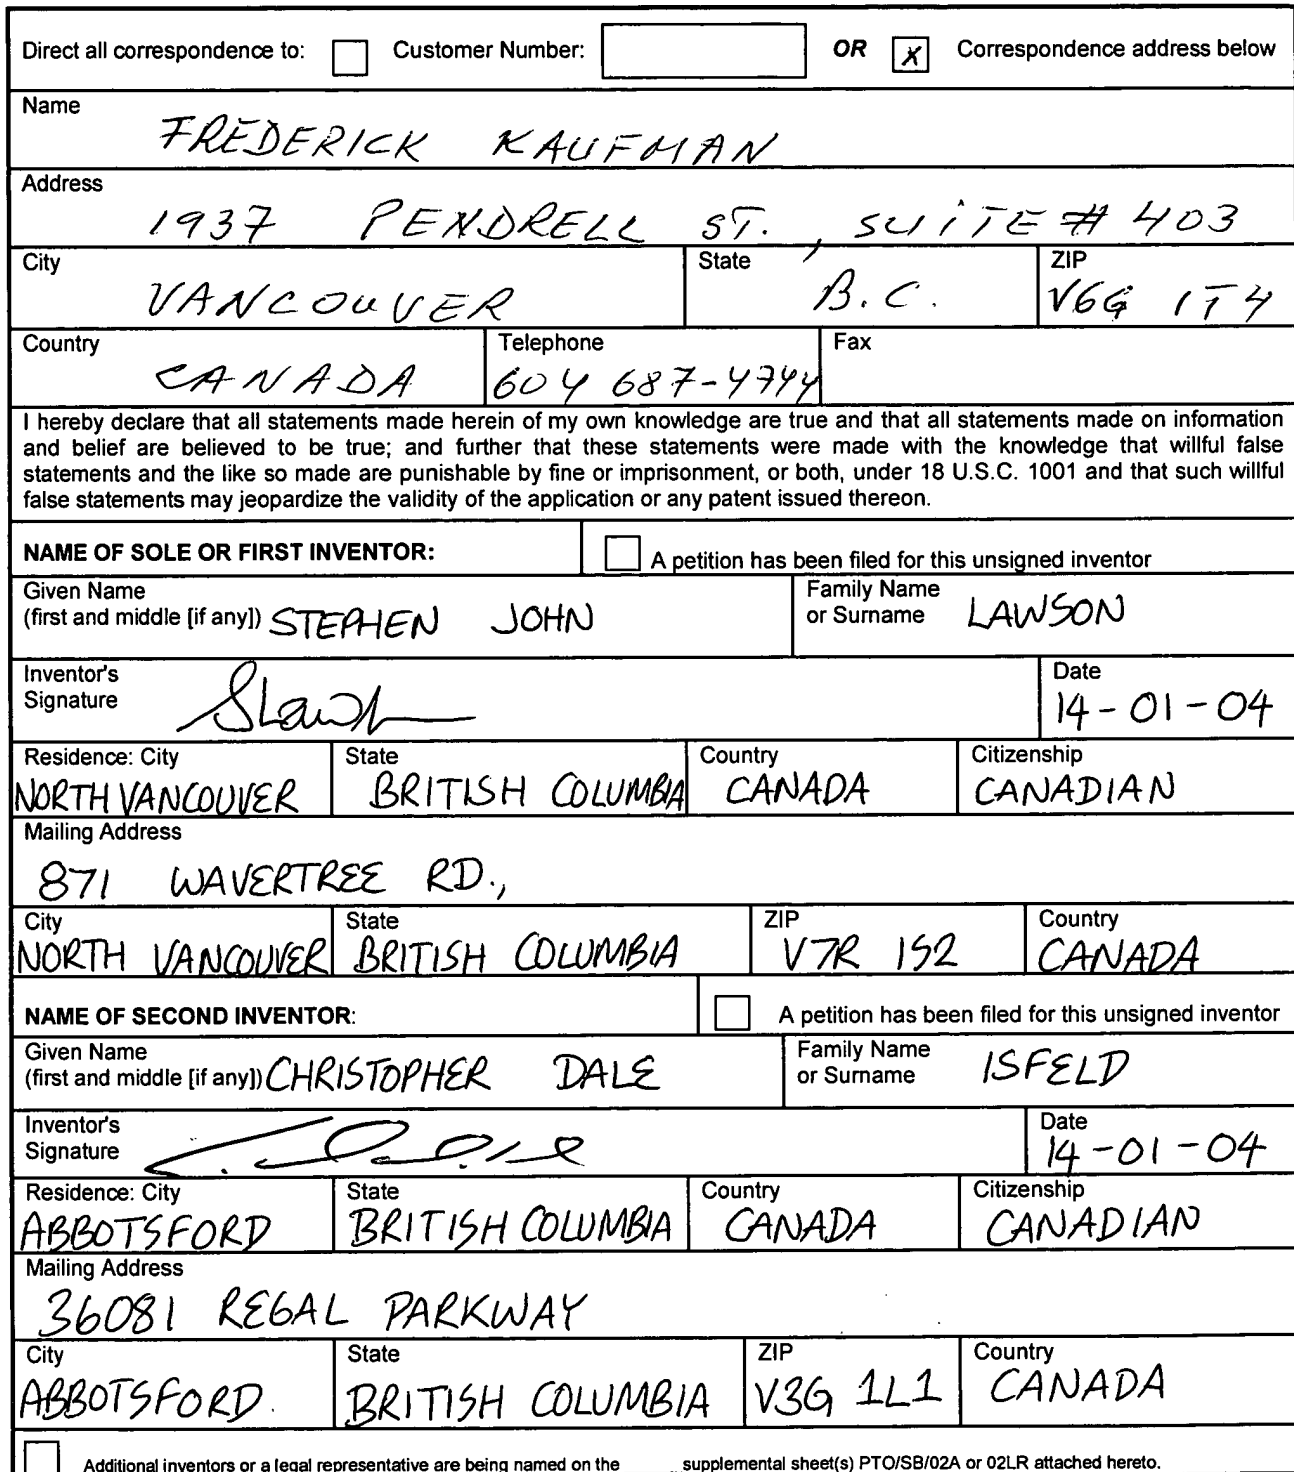 Direct all correspondence to: Customer Number: OR X Correspondence address below
Name
FREDERICK KAUFMAN
Address
1937 PENDRELL ST., SUITE # 403
City State ZIP
VANCOUVER B.C. V6G 1T4
Country Telephone Fax
CANADA 604 687-4744
I hereby declare that all statements made herein of my own knowledge are true and that all statements made on information
and belief are believed to be true; and further that these statements were made with the knowledge that willful false
statements and the like so made are punishable by fine or imprisonment, or both, under 18 U.S.C. 1001 and that such willful
false statements may jeopardize the validity of the application or any patent issued thereon.
NAME OF SOLE OR FIRST INVENTOR: A petition has been filed for this unsigned inventor
Given Name Family Name
(first and middle [if any]) STEPHEN JOHN or Surname LAWSON
Inventor's Date
Signature 14-01-04
Residence: City State Country Citizenship
NORTH VANCOUVER BRITISH COLUMBIA CANADA CANADIAN
Mailing Address
871 WAVERTREE RD.,
City State ZIP Country
NORTH VANCOUVER BRITISH COLUMBIA V7R 1S2 CANADA
NAME OF SECOND INVENTOR: A petition has been filed for this unsigned inventor
Given Name Family Name
(first and middle [if any]) CHRISTOPHER DALE or Surname ISFELD
Inventor's Date
Signature 14-01-04
Residence: City State Country Citizenship
ABBOTSFORD BRITISH COLUMBIA CANADA CANADIAN
Mailing Address
36081 REGAL PARKWAY
City State ZIP Country
ABBOTSFORD. BRITISH COLUMBIA V3G 1L1 CANADA
Additional inventors or a legal representative are being named on the supplemental sheet(s) PTO/SB/02A or 02LR attached hereto.